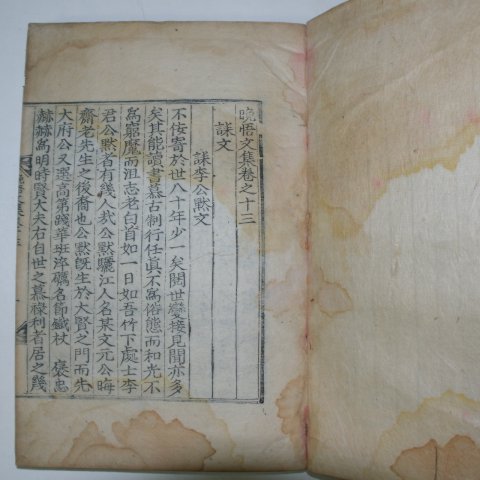 晩悟文集卷之十三
誄文
誄李公黙文
不侫寄於世八十年少一矣閱世變接見聞亦多
矣其能讀書慕古制行任眞不爲俗態而和光不
爲窮魔而沮志老白首如一日如吾竹下處士李
君公黙者有幾人哉公黙驪江人名某文元公晦
齋老先生之後裔也公黙旣生於大賢之門而先
大府公又選高第踐華班淬礪名節鐵杖 褒忠
赫赫爲明時賢大夫右自世之慕祿利者居之幾